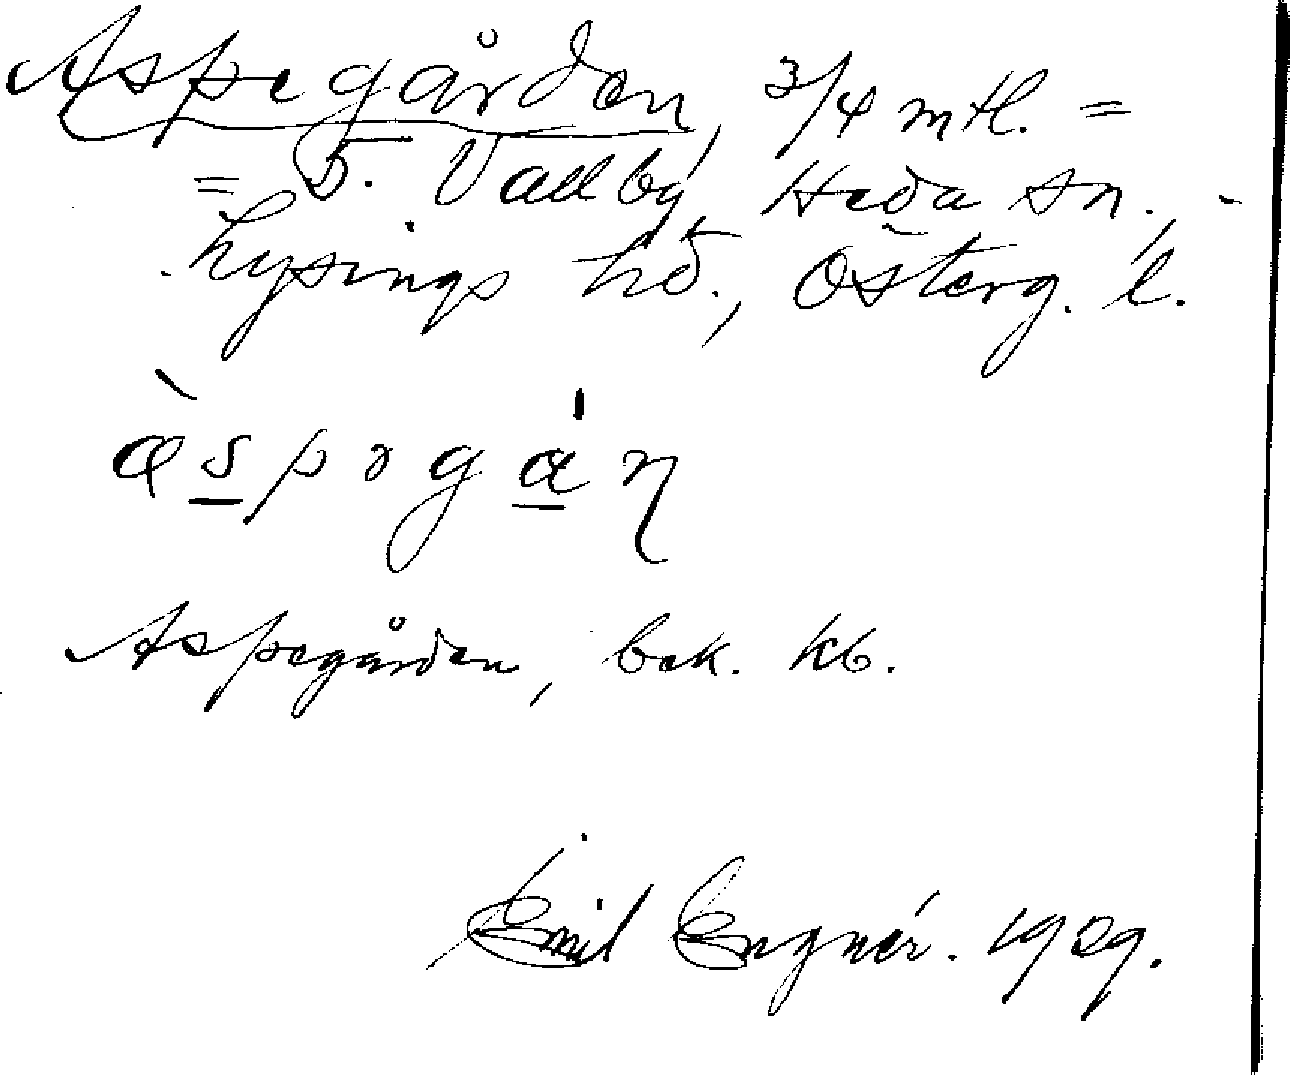 Aspegården, 3/4 mtl. =
= 5. Vallby, Heda sn.,
Lysings hd., Österg. l.
Aspegården, bek. kb.
Emil Engnér. 1929.